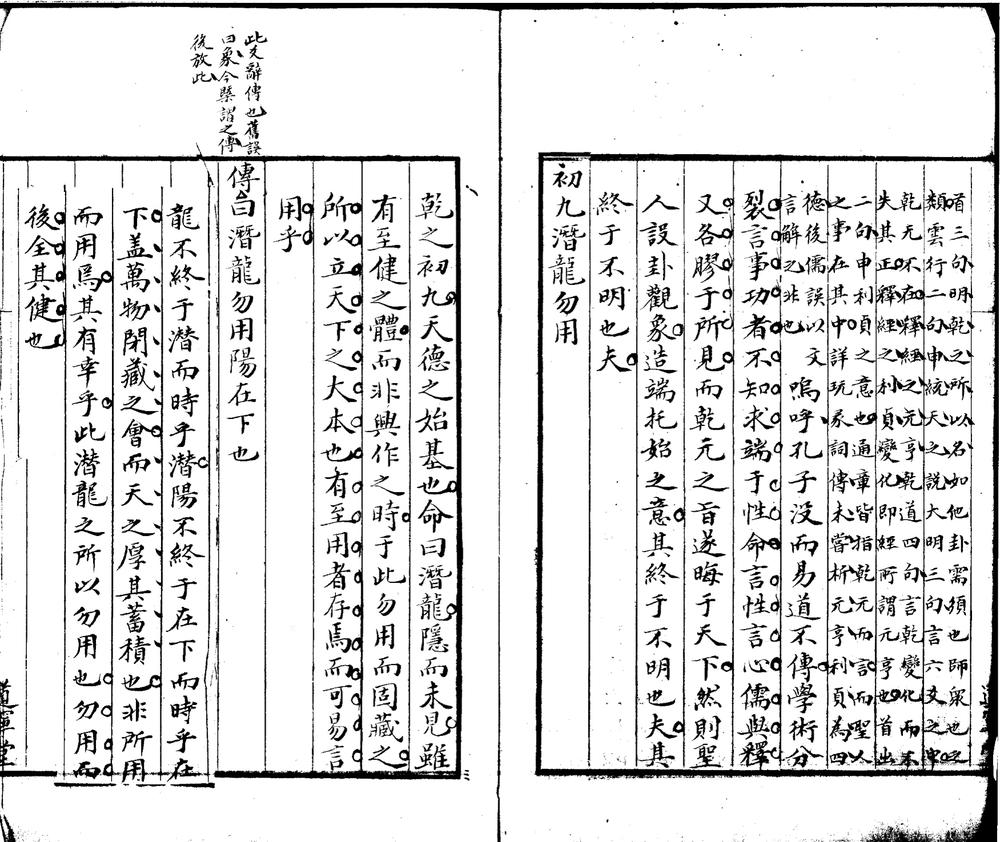 首三句明乾之所以名如他卦需須也師衆也之
類雲行二句申統天之說大明三句言六爻之中
乾元不在釋經之元亨乾道四句言乾變化而不
失其正釋經之利貞變化即經所謂元亨也首出
二句申利貞之意也通章皆指乾元而言而聖人
之事在其中詳玩彖詞傳未嘗析元亨利貞為四
德後儒誤以文
言解之非也
嗚呼孔子没而易道不傳學術分
裂言事功者不知求端于性命言性言心儒與釋
又各膠于所見而乾元之旨遂晦于天下然則聖
人設卦觀象造端托始之意其終于不明也夫其
終于不明也夫
初九潛龍勿用
乾之初九天德之始基也命曰潛龍隱而未見雖
有至健之體而非興作之時于此勿用而固藏之
所以立天下之大本也有至用者存焉而可易言
用乎
此爻辭傳也舊誤
曰象今槩謂之傳
後放此
傳曰潛龍勿用陽在下也
龍不終于潛而時乎潛陽不終于在下而時乎在
下蓋萬物閉藏之會而天之厚其蓄積也非所用
而用焉其有幸乎此潛龍之所以勿用也勿用而
後全其健也